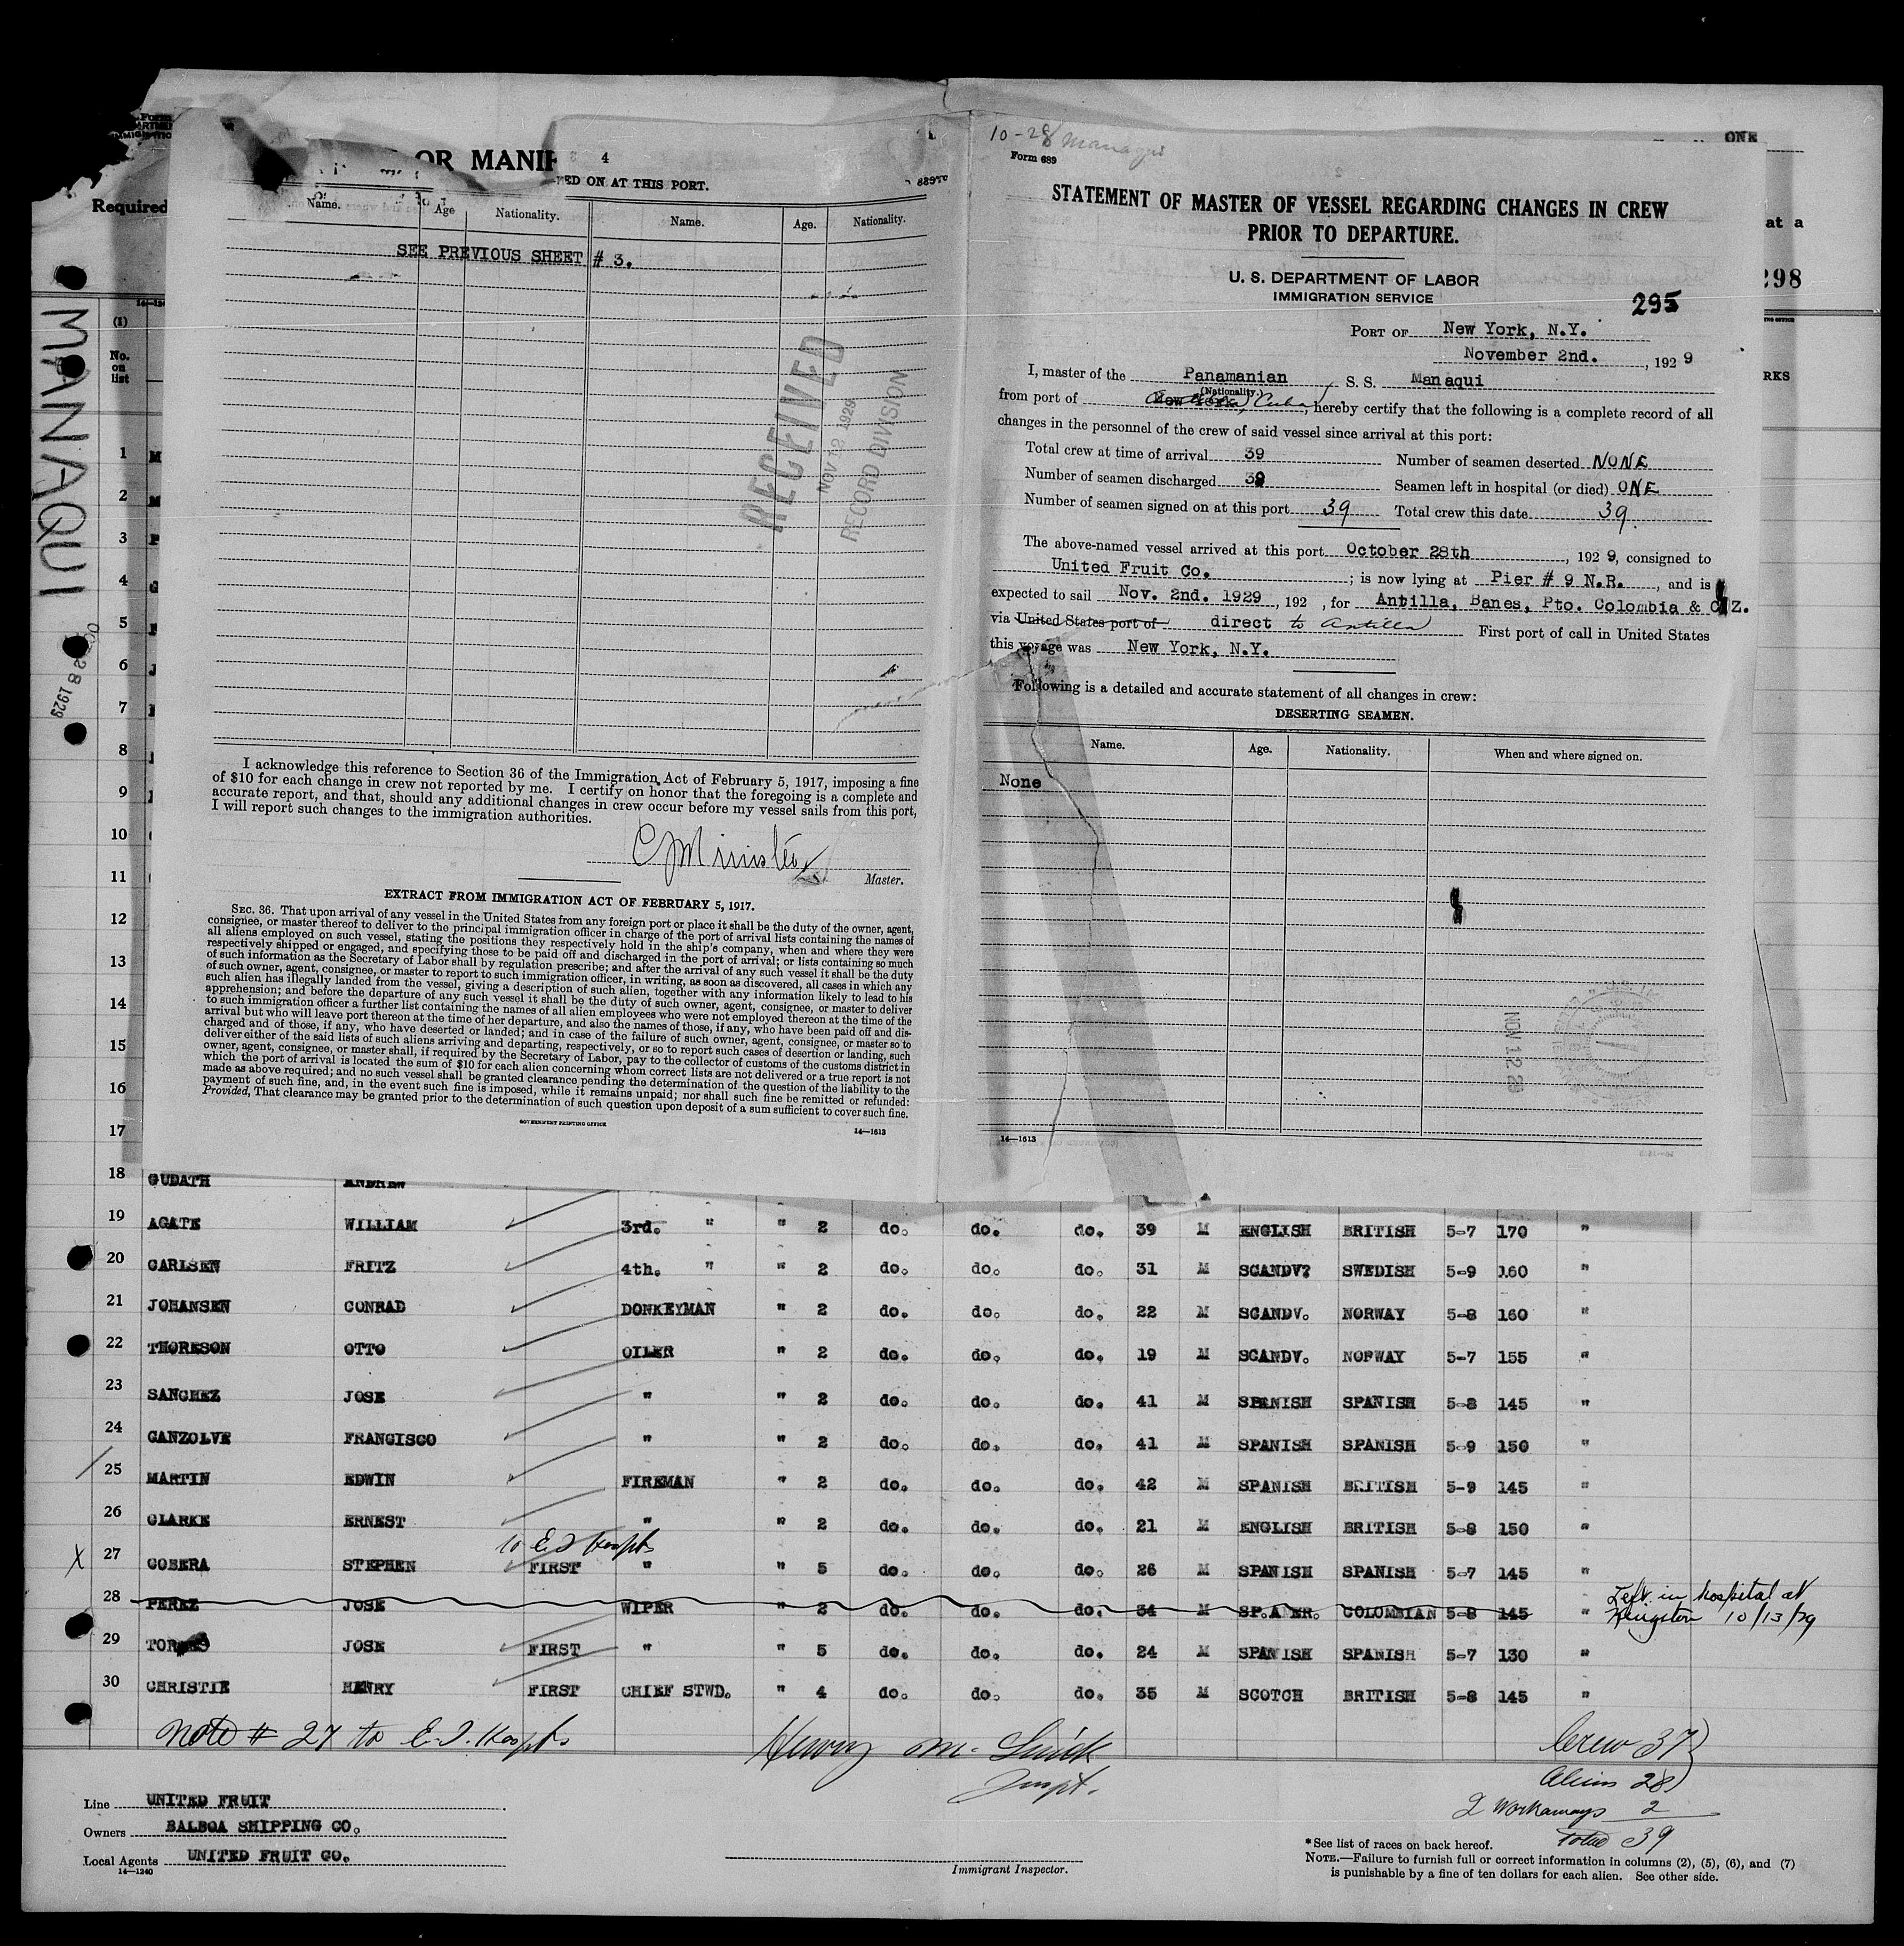 MANAQUI
OCT 28 1929
Required
ONE
at a
298
RKS
(1)
No.
on
list
OR MANIF
4
ED ON AT THIS PORT.
Name. Age Nationality. Name. Age. Nationality.
SEE PREVIOUS SHEET # 3.
RECEIVED
NOV 12 1929
RECORD DIVISION
I acknowledge this reference to Section 36 of the Immigration Act of February 5, 1917, imposing a fine
of $10 for each change in crew not reported by me. I certify on honor that the foregoing is a complete and
accurate report, and that, should any additional changes in crew occur before my vessel sails from this port,
I will report such changes to the immigration authorities.
Master.
EXTRACT FROM IMMIGRATION ACT OF FEBRUARY 5, 1917.
SEC. 36. That upon arrival of any vessel in the United States from any foreign port or place it shall be the duty of the owner, agent,
consignee, or master thereof to deliver to the principal immigration officer in charge of the port of arrival lists containing the names of
all aliens employed on such vessel, stating the positions they respectively hold in the ship's company, when and where they were
respectively shipped or engaged, and specifying those to be paid off and discharged in the port of arrival; or lists containing so much
of such information as the Secretary of Labor shall by regulation prescribe; and after the arrival of any such vessel it shall be the duty
of such owner, agent, consignee, or master to report to such immigration officer, in writing, as soon as discovered, all cases in which any
such alien has illegally landed from the vessel, giving a description of such alien, together with any information likely to lead to his
apprehension; and before the departure of any such vessel it shall be the duty of such owner, agent, consignee, or master to deliver
to such immigration officer a further list containing the names of all alien employees who were not employed thereon at the time of the
arrival but who will leave port thereon at the time of her departure, and also the names of those, if any, who have been paid off and dis-
charged and of those, if any, who have deserted or landed; and in case of the failure of such owner, agent, consignee, or master so to
deliver either of the said lists of such aliens arriving and departing, respectively, or so to report such cases of desertion or landing, such
owner, agent, consignee, or master shall, if required by the Secretary of Labor, pay to the collector of customs of the customs district in
which the port of arrival is located the sum of $10 for each alien concerning whom correct lists are not delivered or a true report is not
made as above required; and no such vessel shall be granted clearance pending the determination of the question of the liability to the
payment of such fine, and, in the event such fine is imposed, while it remains unpaid; nor shall such fine be remitted or refunded:
Provided, That clearance may be granted prior to the determination of such question upon deposit of a sum sufficient to cover such fine.
GOVERNMENT PRINTING OFFICE
14—1613
10-28 Managui
Form 689
STATEMENT OF MASTER OF VESSEL REGARDING CHANGES IN CREW
PRIOR TO DEPARTURE.
U. S. DEPARTMENT OF LABOR
IMMIGRATION SERVICE
295
PORT OF New York, N.Y.
November 2nd. , 192 9
I, master of the Panamanian S. S. Managui
(Nationality.)
from port of New York, Cuba, hereby certify that the following is a complete record of all
changes in the personnel of the crew of said vessel since arrival at this port:
Total crew at time of arrival 39 Number of seamen deserted NONE
Number of seamen discharged 39 Seamen left in hospital (or died) ONE
Number of seamen signed on at this port 39 Total crew this date 39.
The above-named vessel arrived at this port October 28th , 192 9, consigned to
United Fruit Co. ; is now lying at Pier # 9 N.R. , and is
expected to sail Nov. 2nd. 1929 , 192 , for Antilla, Banes, Pto. Colombia & C.Z.
via United States port of direct to Antilla First port of call in United States
this voyage was New York, N.Y.
Following is a detailed and accurate statement of all changes in crew:
DESERTING SEAMEN.
Name. Age. Nationality. When and where signed on.
None
NOV 12 29
14—1613
1
2
3
4
5
6
7
8
9
10
11
12
13
14
15
16
17
18 GUDATH ANDREW
19 AGATE WILLIAM 3rd. " " 2 do. do. do. 39 M ENGLISH BRITISH 5-7 170 "
20 CARLSEN FRITZ 4th. " " 2 do. do. do. 31 M SCANDV? SWEDISH 5-9 160 "
21 JOHANSEN CONRAD DONKEYMAN " 2 do. do. do. 22 M SCANDV. NORWAY 5-8 160 "
22 THORESON OTTO OILER " 2 do. do. do. 19 M SCANDV. NORWAY 5-7 155 "
23 SANCHEZ JOSE " " 2 do. do. do. 41 M SPANISH SPANISH 5-8 145 "
24 CANZOLVE FRANCISCO " " 2 do. do. do. 41 M SPANISH SPANISH 5-9 150 "
25 MARTIN EDWIN FIREMAN " 2 do. do. do. 42 M SPANISH BRITISH 5-9 145 "
26 CLARKE ERNEST " " 2 do. do. do. 21 M ENGLISH BRITISH 5-8 150 "
to E.I Hospts
X 27 COBERA STEPHEN FIRST " " 5 do. do. do. 26 M SPANISH SPANISH 5-7 145 "
28 PEREZ JOSE WIPER " 2 do. do. do. 34 M SP.AMER. COLOMBIAN 5-8 145 " Left in hospital at
Kingston 10/13/29
29 TORRES JOSE FIRST " " 5 do. do. do. 24 M SPANISH SPANISH 5-7 130 "
30 CHRISTIE HENRY FIRST CHIEF STWD. " 4 do. do. do. 35 M SCOTCH BRITISH 5-8 145 "
Note # 27 to E.I. Hospts
Crew 37
Aliens 28
2 Workaways 2
Total 39
Line UNITED FRUIT
Owners BALBOA SHIPPING CO.
Local Agents UNITED FRUIT CO.
14—1240
Immigrant Inspector.
*See list of races on back hereof.
NOTE.—Failure to furnish full or correct information in columns (2), (5), (6), and (7)
is punishable by a fine of ten dollars for each alien. See other side.